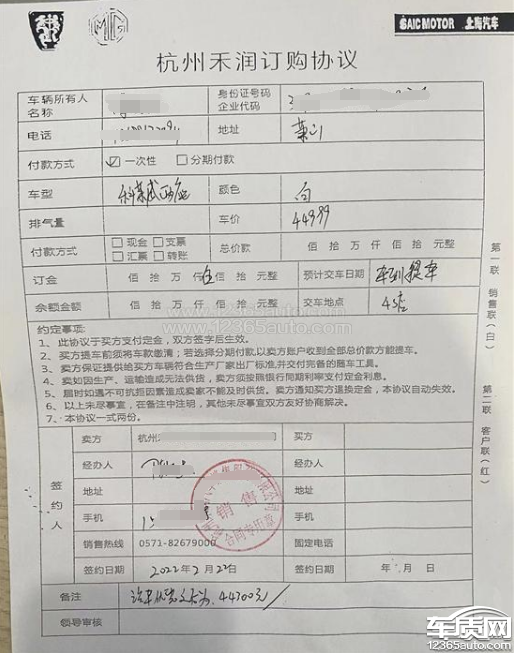 MG
SAIC MOTOR 上海汽车
杭州禾润订购协议
车辆所有人名称 身份证号码 企业代码
电话 地址 萧山
付款方式 ☑ 一次性 ☐ 分期付款
车型 颜色 白
排气量 车价 44999
付款方式 ☐ 现金 ☐ 支票 ☐ 汇票 ☐ 转账 总价款 佰 拾 万 仟 佰 拾 元整
订金 佰 拾 万 仟 伍 佰 拾 元整 预计交车日期 车到提车
余额金额 佰 拾 万 仟 佰 拾 元整 交车地点 4S店
约定事项:
1、此协议于买方支付定金,双方签字后生效。
2、买方提车前须将车款缴清;若选择分期付款,以卖方账户收到全部总价款方能提车。
3、卖方保证提供给买方车辆符合生产厂家出厂标准,并交付完备的随车工具。
4、卖如因生产、运输造成无法供货,卖方须按照银行同期利率支付定金利息。
5、届时如遇不可抗拒因素造或卖家不能及时供货。卖方通知买方退换定金,本协议自动失效。
6、以上未尽事宜,在备注中注明,其他未尽事宜双方友好协商解决。
7、本协议一式两份。
签约人
卖方 杭州 买方
经办人 经办人
地址 地址
手机 手机
销售热线 0571-82679000 固定电话
签约日期 2022年2月22日 签约日期 年 月 日
备注 44700元
领导审核
第一联 销售联(白)
第二联 客户联(红)
销售
合同专用章
www.12365auto.com
车质网
12365auto.com